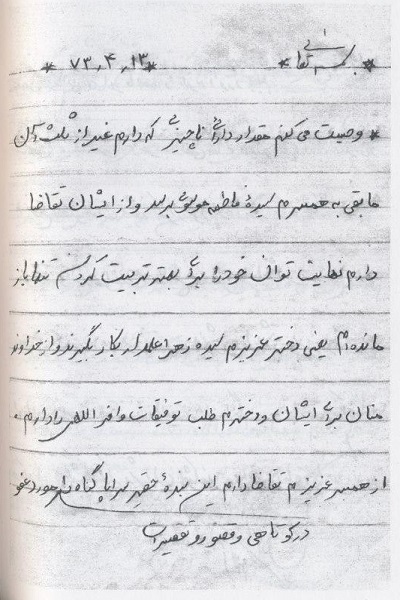 * بسمه تعالی * *۷۳٫۴٫۱۳ *
* وصیت می کنم مقدار دارائی ناچیزی که دارم غیر از ثلث آن
مابقی به همسرم سیده فاطمه موسوی برسد و از ایشان تقاضا
دارم نهایت توان خود را برای بهتر تربیت کردن تنها باز
مانده ام یعنی دختر عزیزم سیده زهرا علمدار بکار بگیرند و از خداوند
منان برای ایشان و دخترم طلب توفیقات وافر الهی را دارم.
از همسر عزیزم تقاضا دارم این بندهٔ حقیر سراپا گناه را مورد عفو
در کوتاهی و قصور و تقصیرات